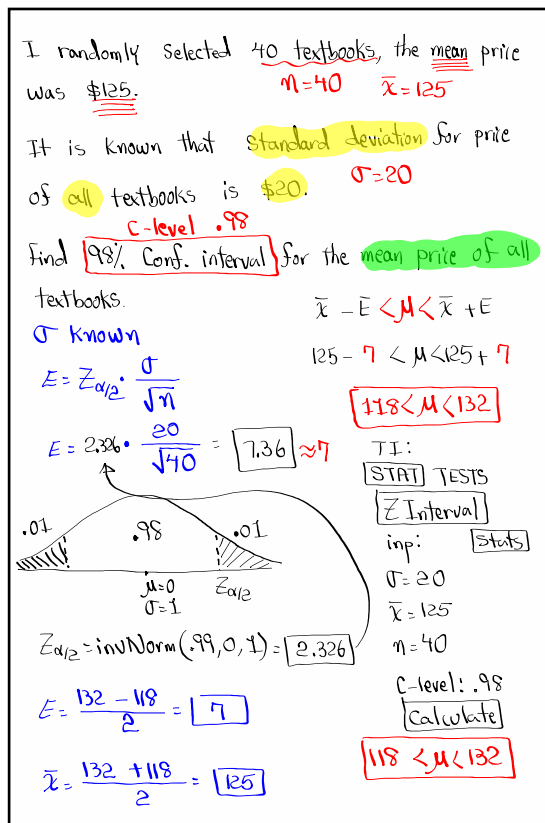 I randomly selected 40 textbooks, the mean price
n=40 x̄=125
was $125.
It is known that standard deviation for price
σ=20
of all textbooks is $20.
C-level .98
Find 98% Conf. interval for the mean price of all
textbooks.
σ Known
E = Zα/2 · σ/√n
E = 2.326 · 20/√40 = 7.36 ≈7
.01 .98 .01
μ=0 Zα/2
σ=1
Zα/2 = invNorm(.99,0,1) = 2.326
E = (132 - 118)/2 = 7
x̄ = (132 + 118)/2 = 125
x̄ - E < μ < x̄ + E
125 - 7 < μ < 125 + 7
118 < μ < 132
TI:
STAT TESTS
Z Interval
inp: Stats
σ=20
x̄=125
n=40
C-level: .98
Calculate
118 < μ < 132